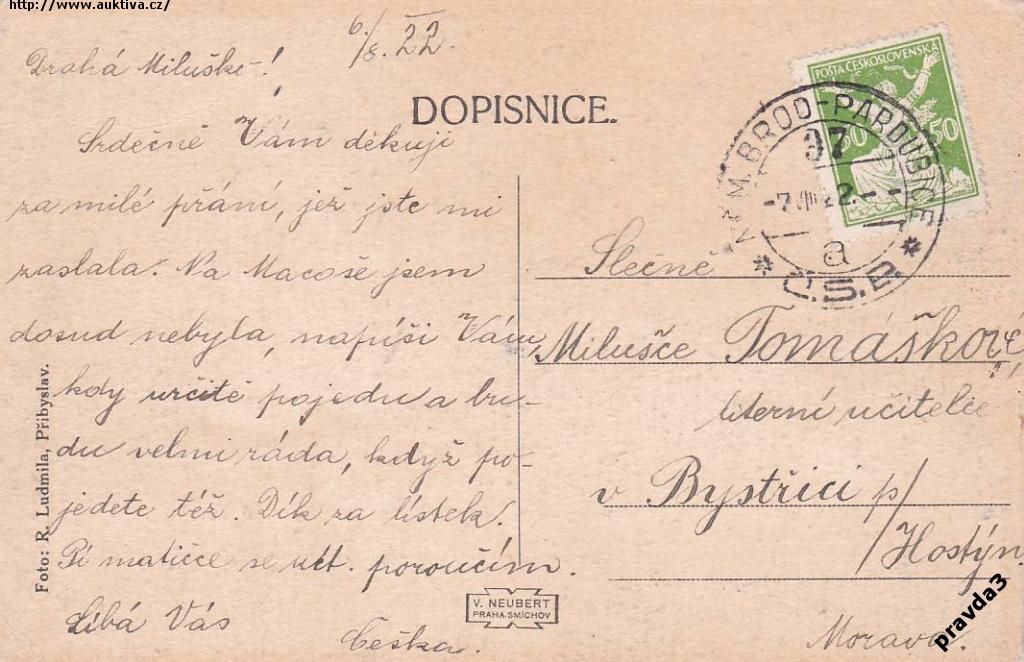 http://www.auktiva.cz/
6./8. 22.
Drahá Miluško!
DOPISNICE.
Srdečně Vám děkuji
za milé přání, jež jste mi
zaslala. Na Macoše jsem
dosud nebyla, napíši Vám,
kdy určitě pojedu a bu-
du velmi ráda, když po-
jedete též. Dík za lístek.
Pí matičce se uct. poroučím.
Líbá Vás
Češka.
Foto: R. Ludmila, Přibyslav.
V. NEUBERT
PRAHA-SMÍCHOV
POŠTA ČESKOSLOVENSKÁ
50 50
NĚM. BROD-PARDUBICE
97
-7.VIII.22.--
a
* Č.S.P. *
Slečně
Milušce Tomáškové,
literní učitelce
v Bystřici p/
/Hostýn
Morava.
pravda3